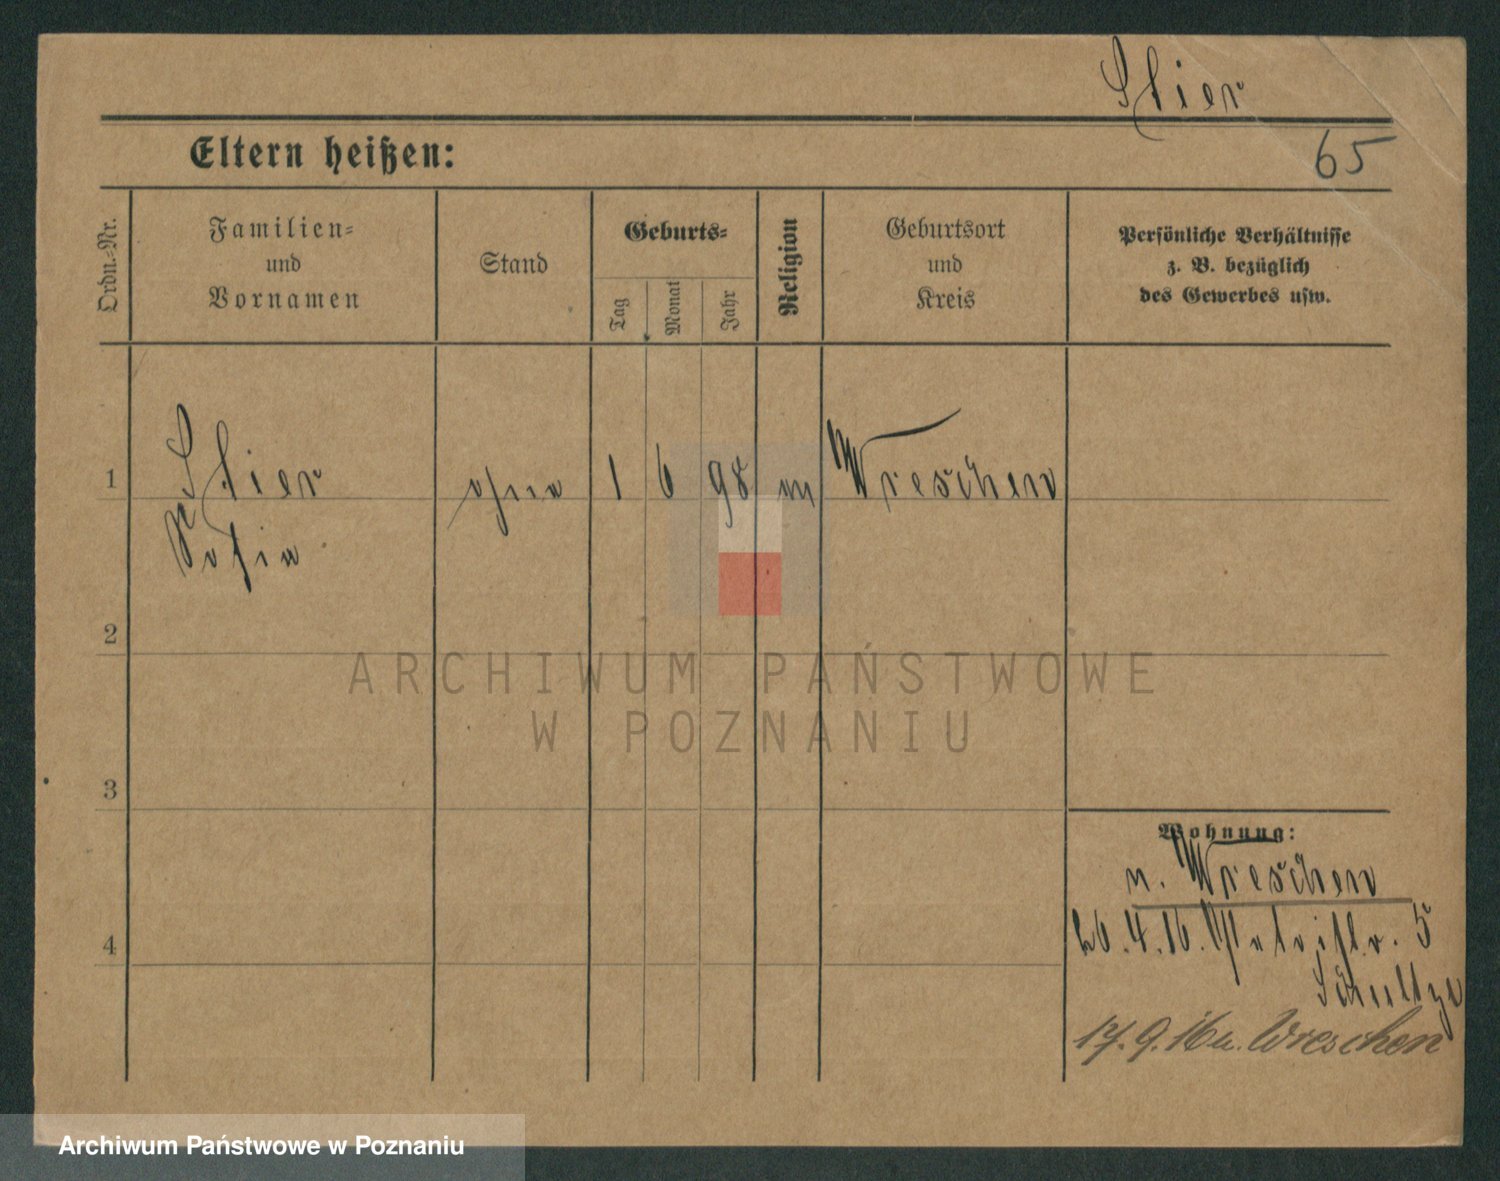 Stier
Eltern heißen:
65
Ordn.-Nr.
Familien-
und
Vornamen
Stand
Geburts-
Tag
Monat
Jahr
Religion
Geburtsort
und
Kreis
Persönliche Verhältnisse
z. B. bezüglich
des Gewerbes usw.
1
Stier
1 6 98
Wreschen
Sofia
2
ARCHIWUM PAŃSTWOWE
W POZNANIU
3
Wohnung:
n. Wreschen
4
26.4.16. Petristr. 5
Schultze
17.9.16 n. Wreschen
Archiwum Państwowe w Poznaniu